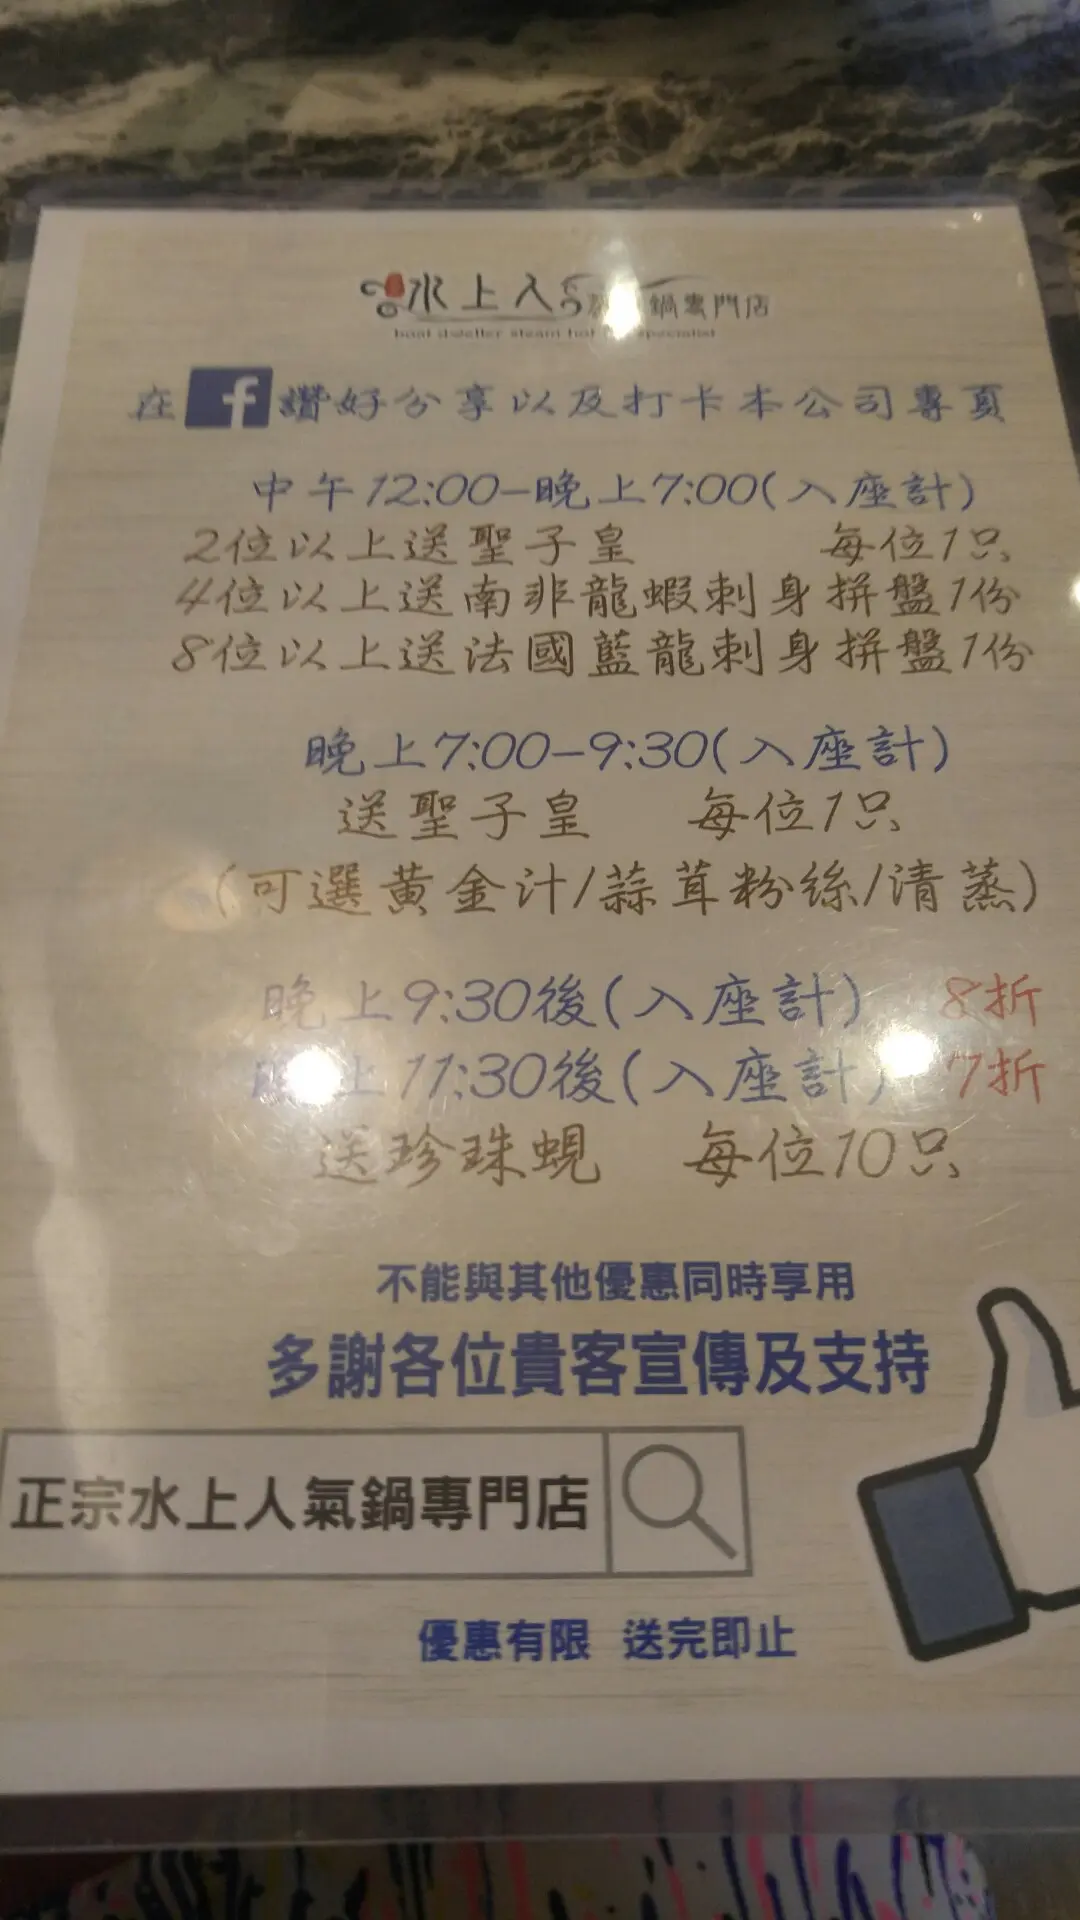 水上人 鍋專門店
boat dweller steam hot specialist
在f讚好分享以及打卡本公司專頁
中午12:00-晚上7:00(入座計)
2位以上送聖子皇 每位1只
4位以上送南非龍蝦刺身拼盤1份
8位以上送法國藍龍刺身拼盤1份
晚上7:00-9:30(入座計)
送聖子皇 每位1只
(可選黃金汁/蒜茸粉絲/清蒸)
晚上9:30後(入座計) 8折
晚上11:30後(入座計) 7折
送珍珠蜆 每位10只
不能與其他優惠同時享用
多謝各位貴客宣傳及支持
正宗水上人氣鍋專門店
優惠有限 送完即止